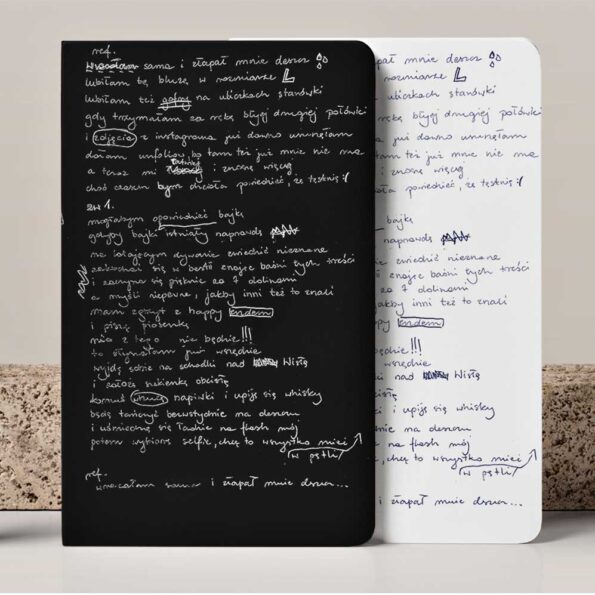 ref.
wracałam sama i złapał mnie deszcz
lubiłam tę bluzę w rozmiarze L
lubiłam też gofry na uliczkach stanówki
gdy trzymałam za rękę byłej drugiej połówki
i zdjęcia z instagrama już dawno usunęłam
dałam unfollow, bo tam też już mnie nie ma
a teraz mi łatwiej i znoszę więcej
choć czasem bym chciała powiedzieć, że tęsknię :(
zw 1.
mogłabym opowiedzieć bajkę
gdyby bajki istniały naprawdę
na latającym dywanie zwiedzić nieznane
zakochać się w bestii znając baśni tych treści
i zasnąć się pięknie za 7 dolinami
a myśli niepewne, jakby inni też to znali
mam zgrzyt z happy endem
i piszę piosenkę
nic z tego nie będzie!!!
to słyszałam już wszędzie
wyjdę sobie na schodki nad Wisłę
i założę sukienkę obcisłą
komuś wrzucę napiwki i upiję się whisky
będę tańczyć bezwstydnie na deszczu
i uśmiechnę się ładnie na flash mój
potem wybiorę selfie, chcę to wszystko mieć
w pętli
ref.
wracałam sama i złapał mnie deszcz...
pał mnie deszcz
rozmiarze L
uliczkach stanówki
kę byłej drugiej połówki
już dawno usunęłam
też już mnie nie ma
i znoszę więcej
ła powiedzieć, że tęsknię :(
bajkę
naprawdę
zwiedzić nieznane
znając baśni tych treści
za 7 dolinami
jakby inni też to znali
py endem
będzie!!!
wszędzie
nad Wisłę
obcisłą
i upiję się whisky
na deszczu
na flash mój
, chcę to wszystko mieć
w pętli
i złapał mnie deszcz...